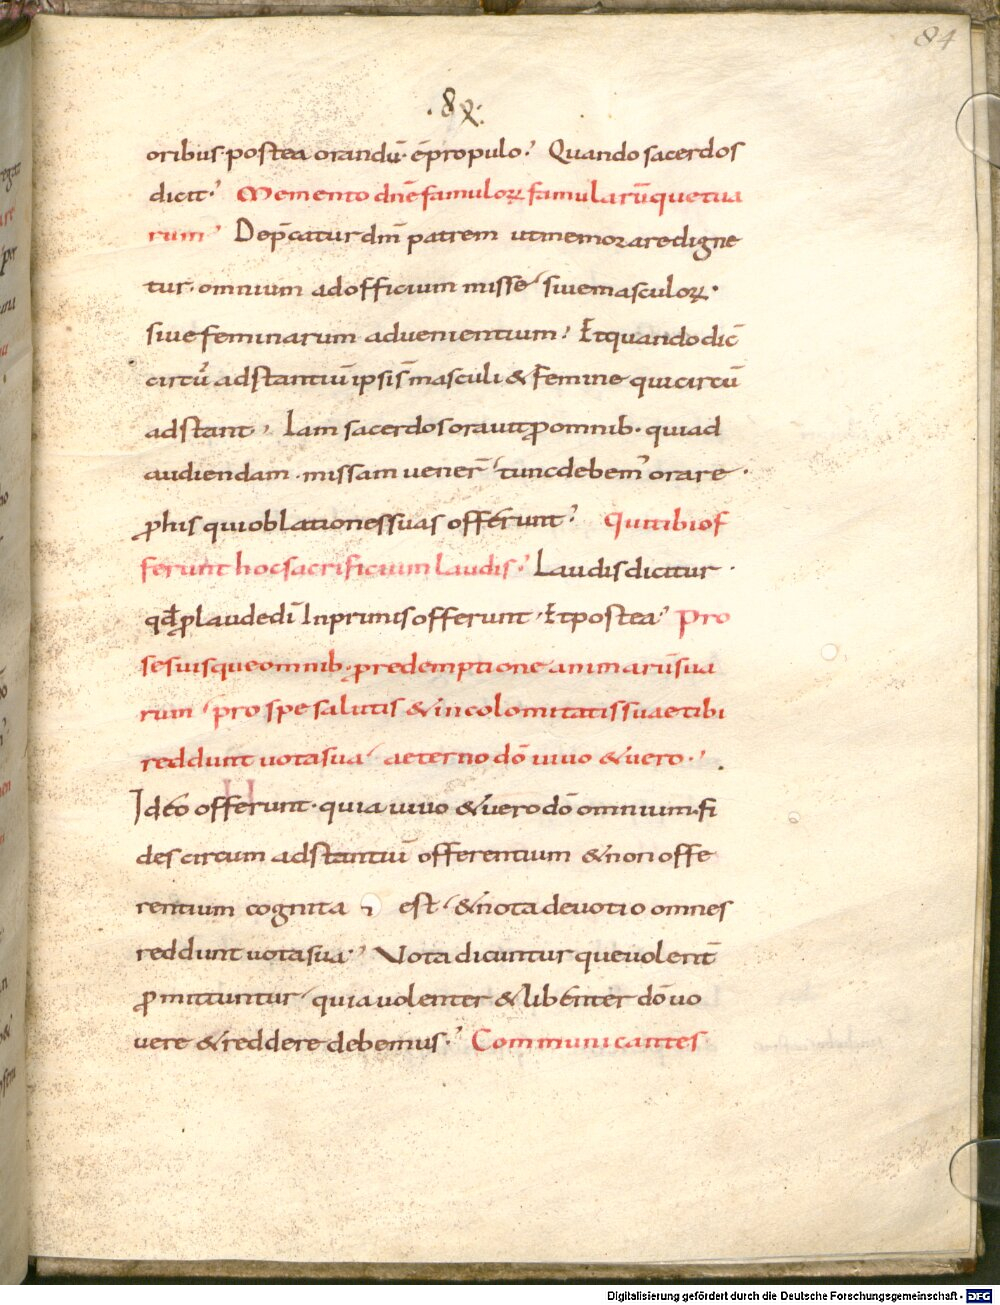 84
.84.
oribus·postea orandū· ē propulo? Quando sacerdos
dicit? Memento dnē famuloꝝ famularūque tua
rum? Dep̄catur dnm̄ patrem ut memorare digne
tur· omnium ad officium misse siue masculoꝝ·
siue feminarum aduenientium? Et quando dic̄
circū adstantiū ipsis̄ masculi & femine qui circū
adstant, Iam sacerdos orauit ꝓ omnib· qui ad
audiendam missam uener̄ tunc debem᾽ orare·
ꝓ his qui oblationes suas offerunt? Qui tibi of
ferunt hoc sacrificium laudis? Laudis dicitur·
qđ ꝓ laude dei Inprimis offerunt· Et postea? Pro
se suisque omnib· ꝓ redemptione animarū sua
rum pro spe salutis & incolomitatis suae tibi
reddunt uota sua aeterno dō uiuo & uero·,
Ideo offerunt· quia uiuo & uero dō omnium· fi
des circum adstantiū offerentium & non offe
rentium cognita est & nota deuotio omnes
reddunt uota sua? Vota dicuntur que uolent̄
ꝓmittuntur quia uolenter & libenter dō uo
uere & reddere debemus? Communicantes·
Digitalisierung gefördert durch die Deutsche Forschungsgemeinschaft - DFG